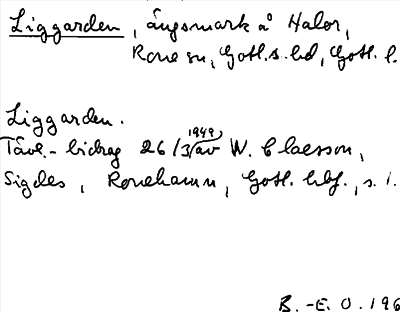 Liggarden, ängsmark å Halor,
Rone sn, Gotl.s. hd, Gotl. l.
Liggarden.
Tävl.-bidrag 26/3 1949 av W. Claesson,
Sigdes, Ronehamn, Gotl. hbf., s. 1.
B.-E. O. 196